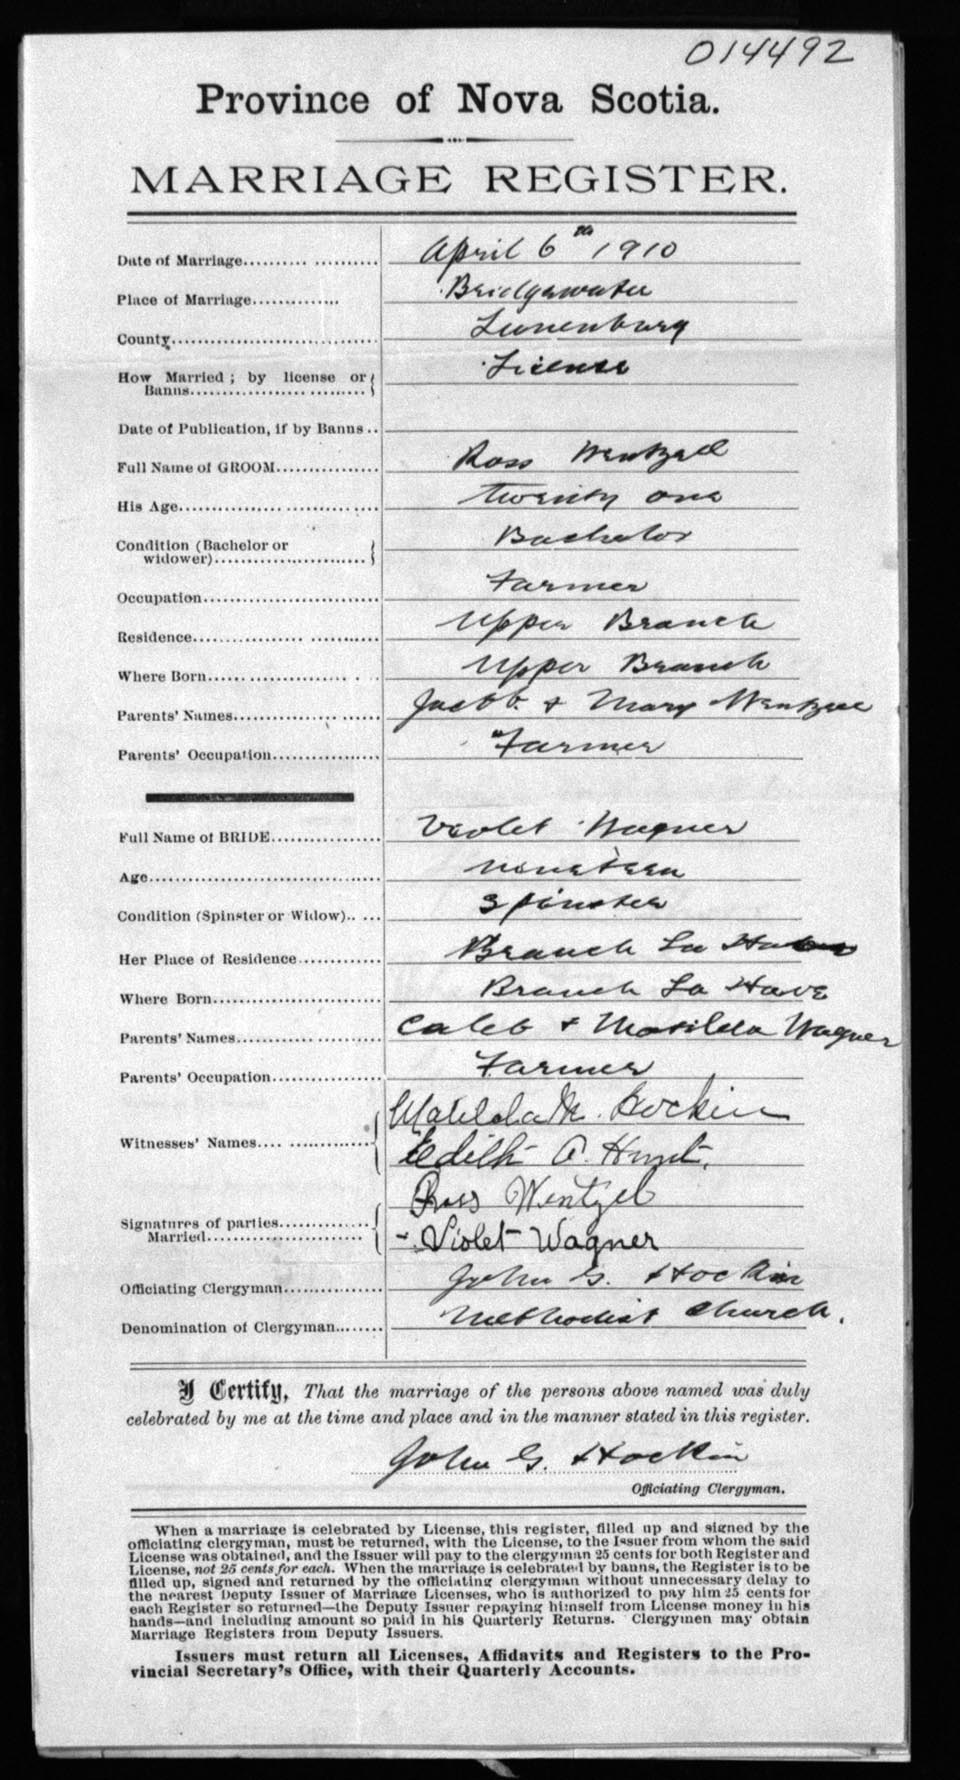 014492
Province of Nova Scotia.
MARRIAGE REGISTER.
Date of Marriage.................... April 6th 1910
Place of Marriage............. Bridgewater
County................................ Lunenburg
How Married ; by license or
Banns........................... License
Date of Publication, if by Banns ..
Full Name of GROOM................ Ross Wentzell
His Age............................... twenty one
Condition (Bachelor or
widower)....................... Bachelor
Occupation........................... Farmer
Residence........................... Upper Branch
Where Born....................... Upper Branch
Parents' Names..................... & Mary Wentzell
Parents' Occupation................ Farmer
Full Name of BRIDE................ Violet Wagner
Age................................... nineteen
Condition (Spinster or Widow)..... Spinster
Her Place of Residence............ Branch La
Where Born........................ Branch La Have
Parents' Names..................... Caleb & Matilda Wagner
Parents' Occupation................ Farmer
Witnesses' Names.... ............... Matilda M. Hockin
Edith A. Hunt.
Ross Wentzel
Signatures of parties.............
Married....................... Violet Wagner
Officiating Clergyman................ John G. Hockin
Denomination of Clergyman........ Methodist Church.
I Certify, That the marriage of the persons above named was duly
celebrated by me at the time and place and in the manner stated in this register.
John G. Hockin
Officiating Clergyman.
When a marriage is celebrated by License, this register, filled up and signed by the
officiating clergyman, must be returned, with the License, to the Issuer from whom the said
License was obtained, and the Issuer will pay to the clergyman 25 cents for both Register and
License, not 25 cents for each. When the marriage is celebrated by banns, the Register is to be
filled up, signed and returned by the officiating clergyman without unnecessary delay to
the nearest Deputy Issuer of Marriage Licenses, who is authorized to pay him 25 cents for
each Register so returned—the Deputy Issuer repaying himself from License money in his
hands—and including amount so paid in his Quarterly Returns. Clergymen may obtain
Marriage Registers from Deputy Issuers.
Issuers must return all Licenses, Affidavits and Registers to the Pro-
vincial Secretary's Office, with their Quarterly Accounts.